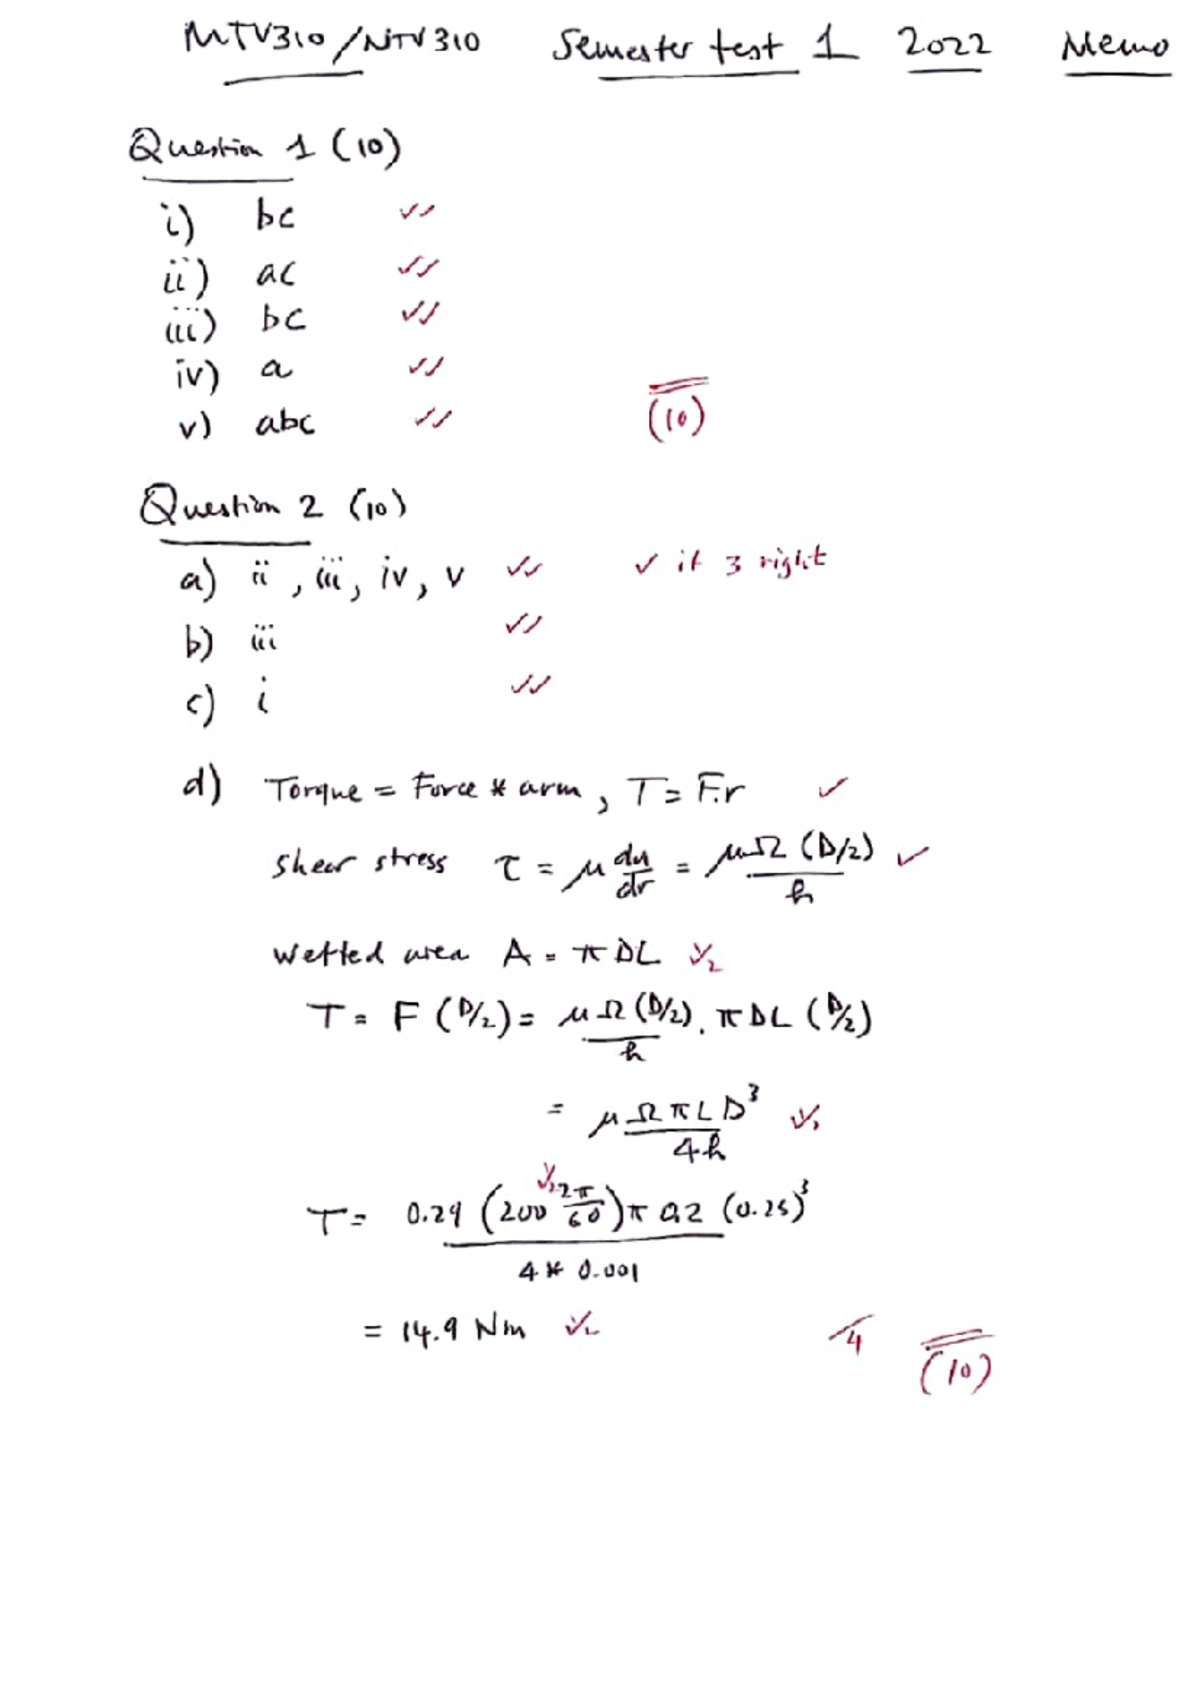 MTV310/NTV310 Semester test 1 2022 Memo
Question 1 (10)
i) bc ✓✓
ii) ac ✓✓
iii) bc ✓✓
iv) a ✓✓
v) abc ✓✓
(10)
Question 2 (10)
a) ii, iii, iv, v ✓✓ ✓ if 3 right
b) iii ✓✓
c) i ✓✓
d) Torque = Force * arm, T = F.r ✓
Shear stress τ = μ du/dr = μΩ(D/2)/h ✓
Wetted area A = πDL ✓½
T = F(D/2) = μΩ(D/2)/h . πDL (D/2)
= μΩπLD³/4h ✓½
T = 0.29 (200 2π/60) π 0.2 (0.25)³ / 4 * 0.001 ✓½
= 14.9 Nm ✓½
/4 (10)